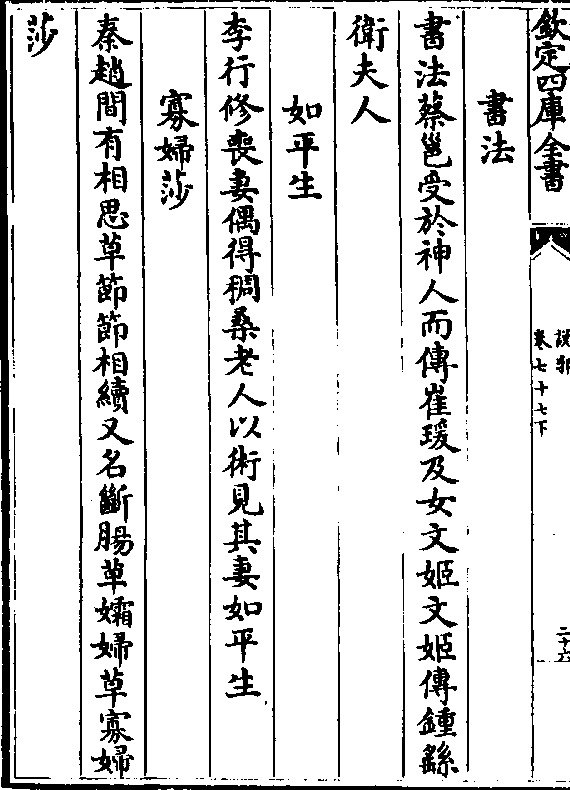 欽定四庫全書
說郛
卷七十七下
二十六
書法
書法蔡邕受於神人而傳崔瑗及女文姬文姬傳鍾繇
衛夫人
如平生
李行修喪妻偶得稠桑老人以術見其妻如平生
寡婦莎
秦趙間有相思草節節相續又名斷腸草孀婦草寡婦
莎